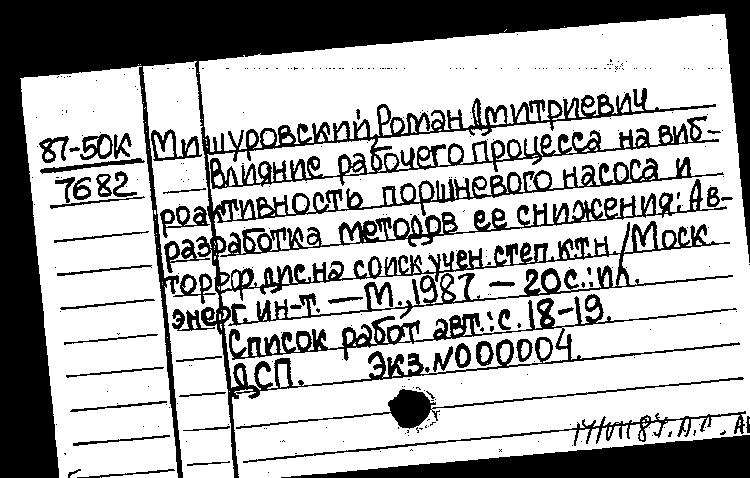 87-50к Мишуровский, Роман Дмитриевич.
7682 Влияние рабочего процесса на виб-
роактивность поршневого насоса и
разработка методов ее снижения: Ав-
тореф. дис. на соиск. учен. степ. к.т.н. / Моск.
энерг. ин-т. — М., 1987. — 20 с.: ил.
Список работ авт.: с. 18-19.
ДСП. Экз. N000004.